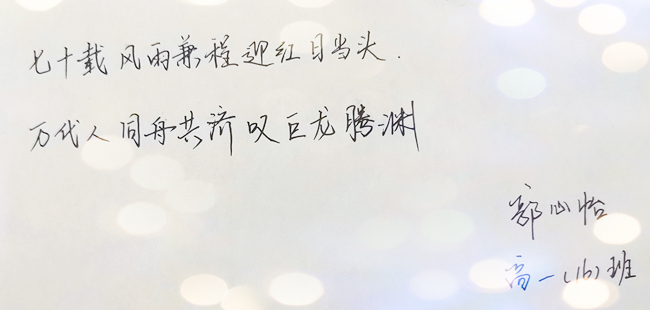 七十载风雨兼程迎红日当头.
万代人同舟共济叹巨龙腾渊
郭心怡
高一(16)班